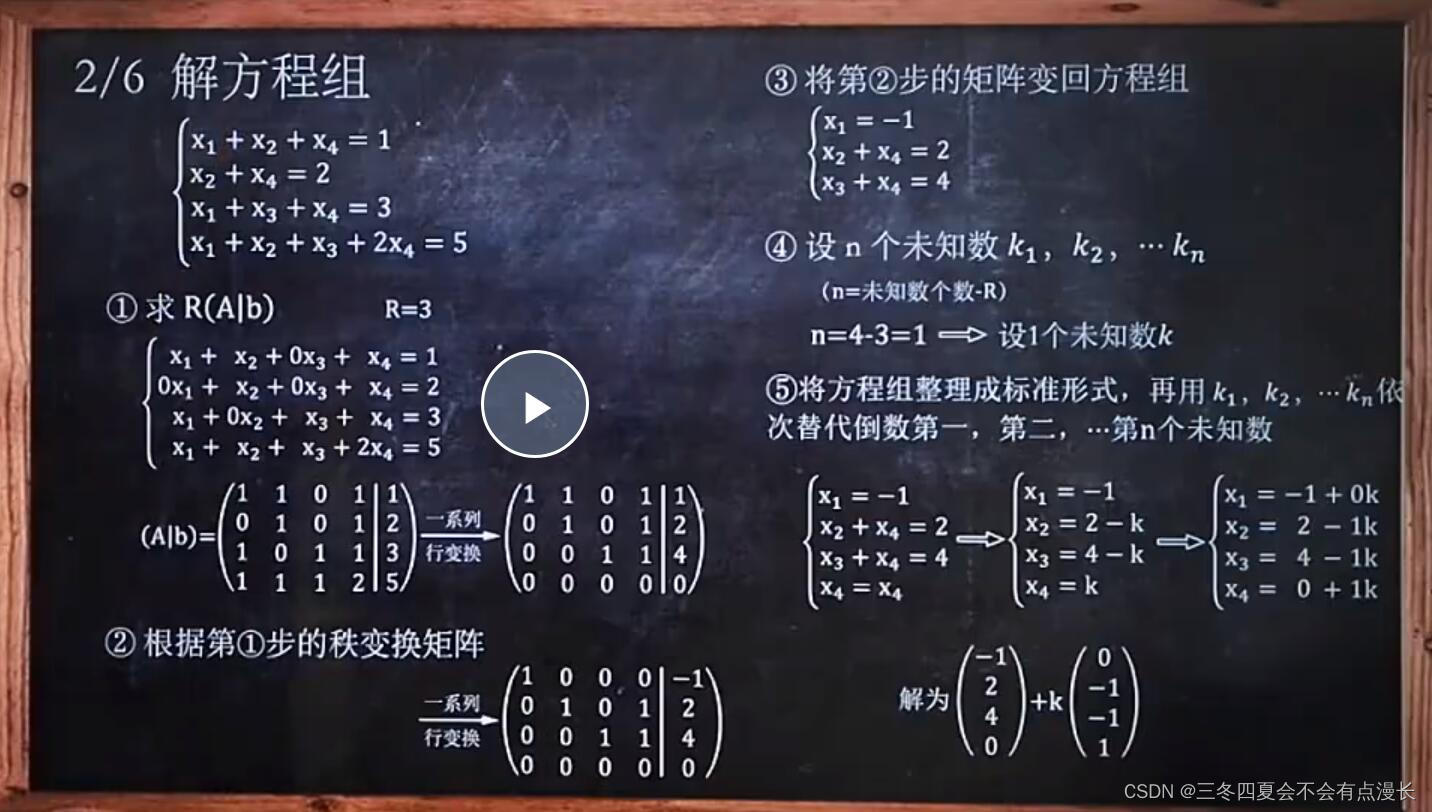 2/6 解方程组
x₁ + x₂ + x₄ = 1
x₂ + x₄ = 2
x₁ + x₃ + x₄ = 3
x₁ + x₂ + x₃ + 2x₄ = 5
① 求 R(A|b) R=3
x₁ + x₂ + 0x₃ + x₄ = 1
0x₁ + x₂ + 0x₃ + x₄ = 2
x₁ + 0x₂ + x₃ + x₄ = 3
x₁ + x₂ + x₃ + 2x₄ = 5
(A|b)=
1 1 0 1 | 1
0 1 0 1 | 2
1 0 1 1 | 3
1 1 1 2 | 5
一系列
行变换
1 1 0 1 | 1
0 1 0 1 | 2
0 0 1 1 | 4
0 0 0 0 | 0
② 根据第①步的秩变换矩阵
一系列
行变换
1 0 0 0 | −1
0 1 0 1 | 2
0 0 1 1 | 4
0 0 0 0 | 0
③ 将第②步的矩阵变回方程组
x₁ = −1
x₂ + x₄ = 2
x₃ + x₄ = 4
④ 设 n 个未知数 k₁，k₂，⋯ kₙ
（n=未知数个数-R）
n=4-3=1 ⟹ 设1个未知数k
⑤将方程组整理成标准形式，再用 k₁，k₂，⋯ kₙ依
次替代倒数第一，第二，⋯第n个未知数
x₁ = −1
x₂ + x₄ = 2
x₃ + x₄ = 4
x₄ = x₄
⟹
x₁ = −1
x₂ = 2 − k
x₃ = 4 − k
x₄ = k
⟹
x₁ = −1 + 0k
x₂ = 2 − 1k
x₃ = 4 − 1k
x₄ = 0 + 1k
解为
−1
2
4
0
+k
0
−1
−1
1
CSDN @三冬四夏会不会有点漫长